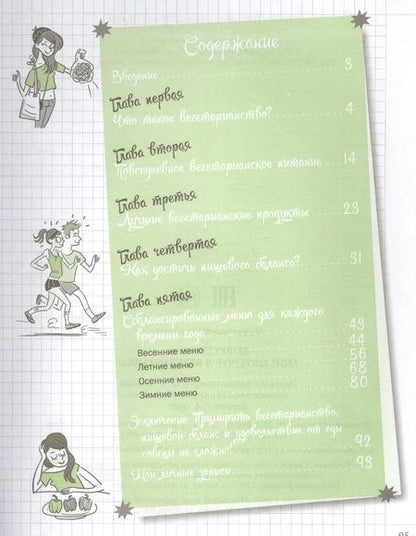 Содержание
Введение 3
Глава первая
Что такое вегетарианство? 4
Глава вторая
Повседневное вегетарианское питание 14
Глава третья
Лучшие вегетарианские продукты 23
Глава четвертая
Как достичь пищевого баланса? 31
Глава пятая
Сбалансированные меню для каждого
времени года 43
Весенние меню 44
Летние меню 56
Осенние меню 68
Зимние меню 80
Заключение Примирить вегетарианство,
пищевой баланс и удовольствие от еды
совсем не сложно! 92
Мои личные записи 93